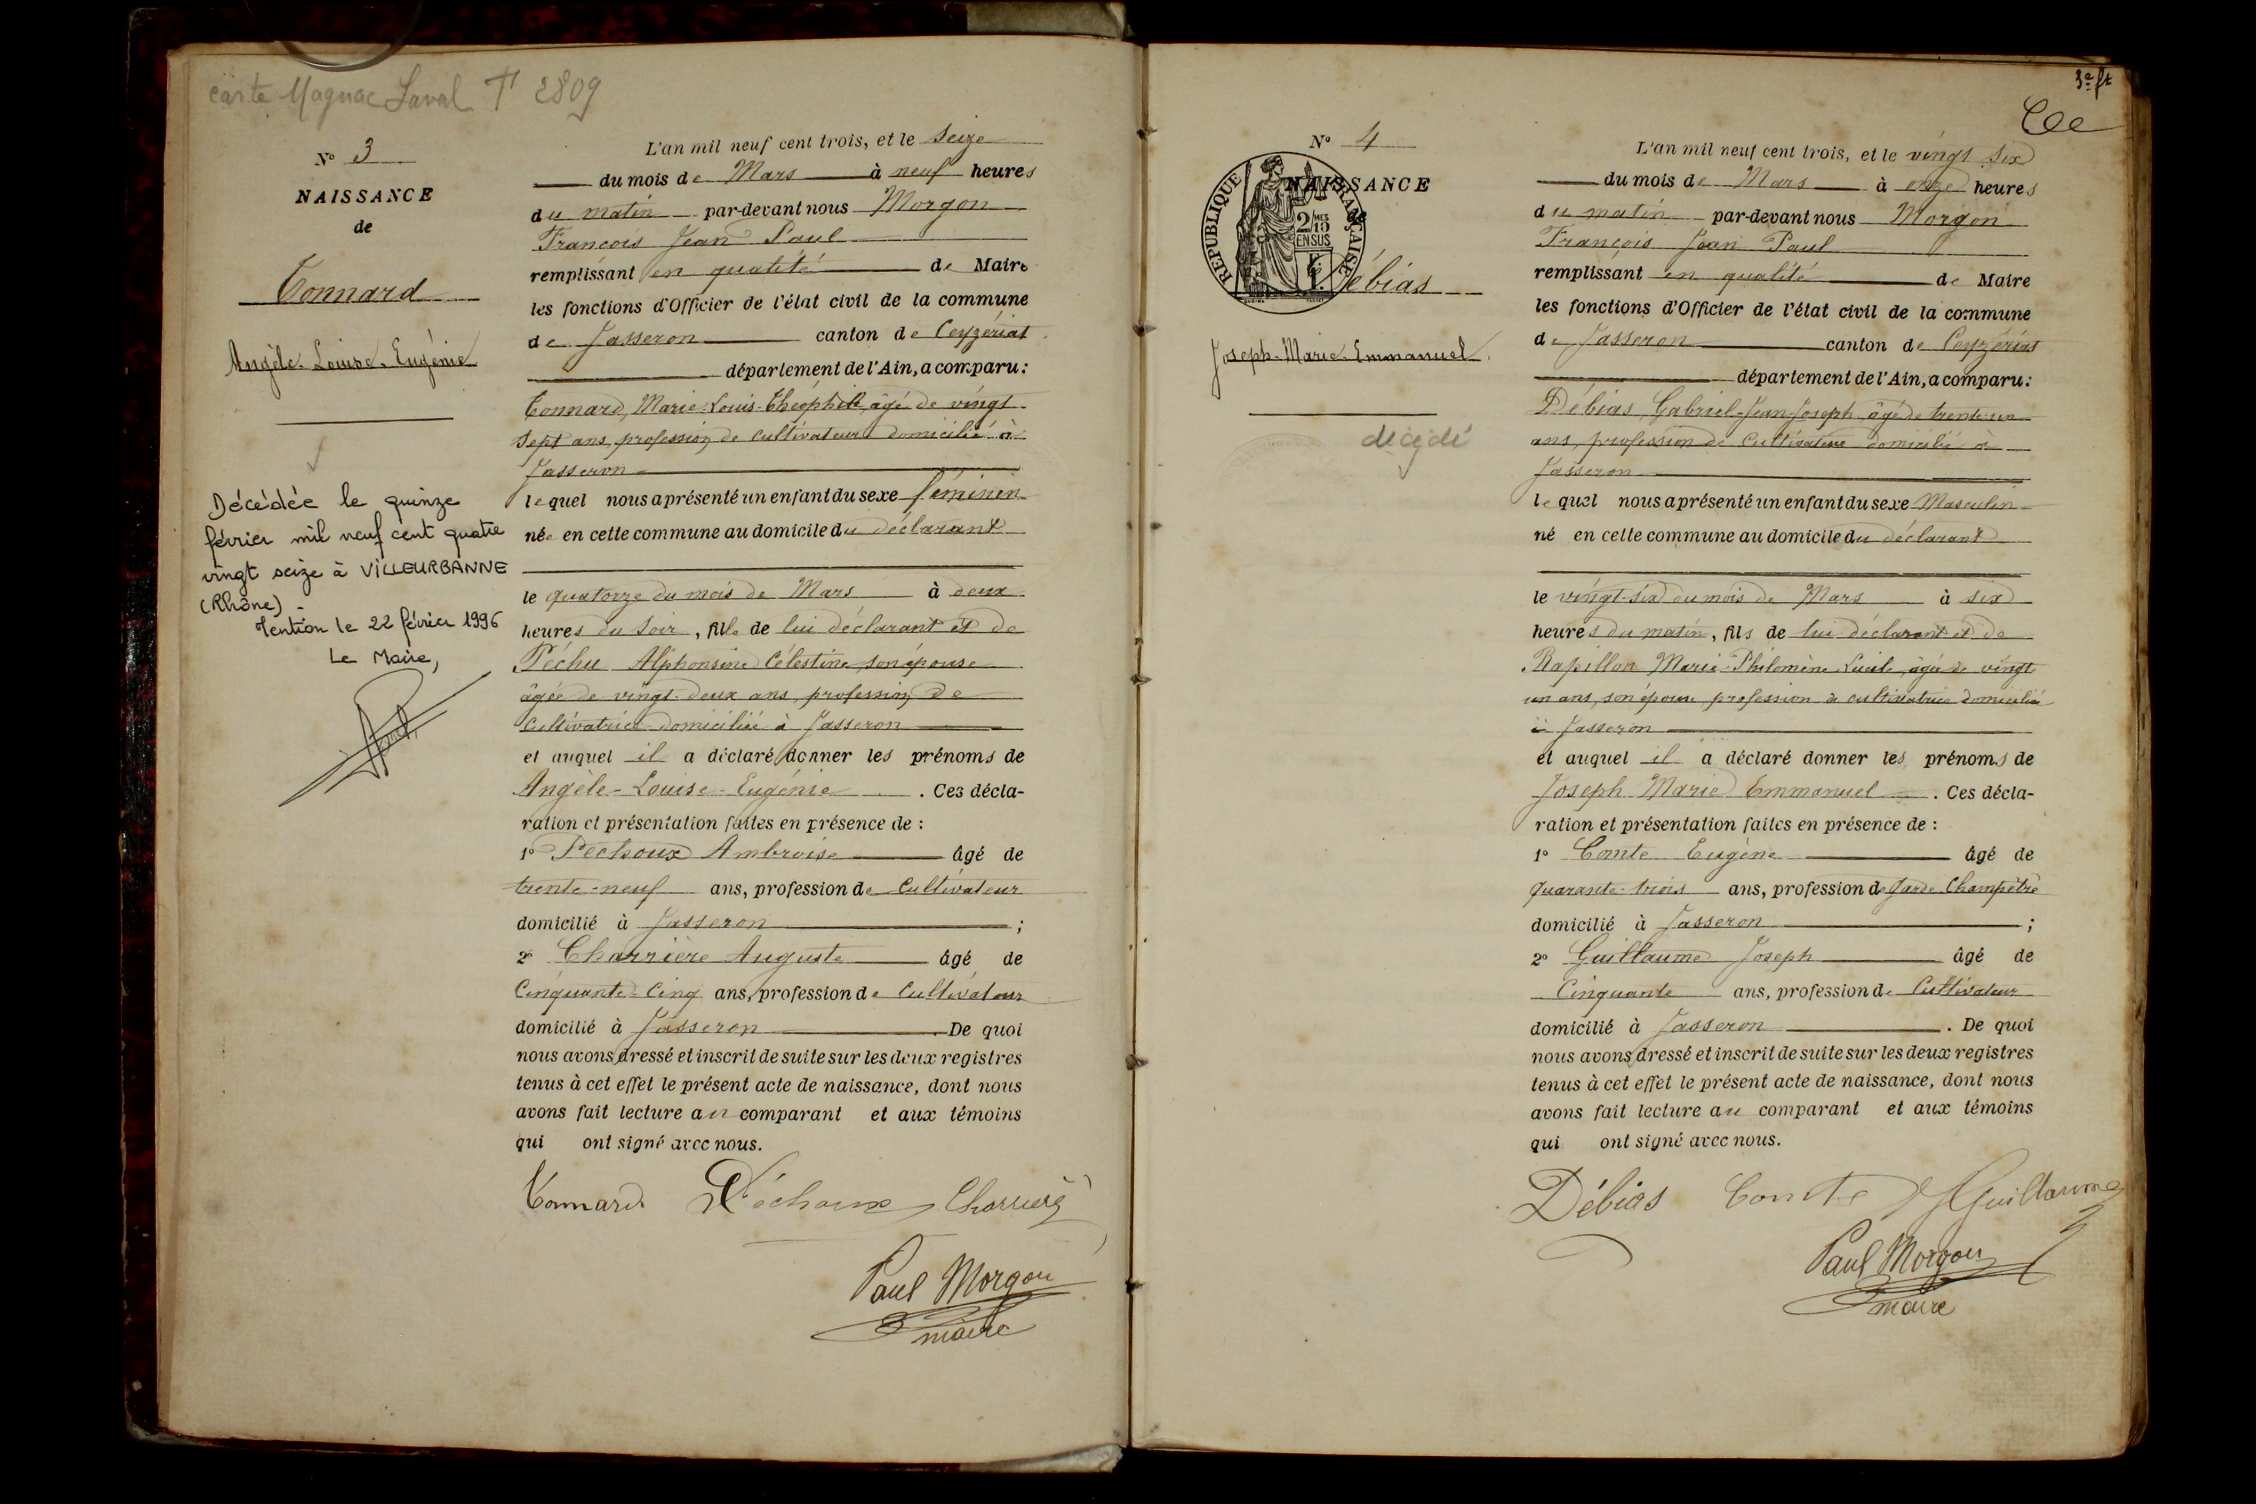 carte Magnac Laval T 2809
N° 3
NAISSANCE
de
Tonnard
Angèle-Louise-Eugénie
Décédée le quinze
février mil neuf cent quatre
vingt seize à VILLEURBANNE
(Rhône) -
Mention le 22 février 1996
Le Maire,
L'an mil neuf cent trois, et le seize
du mois de Mars à neuf heures
du matin par-devant nous Morgon
François Jean Paul
remplissant en qualité de Maire
les fonctions d'Officier de l'état civil de la commune
de Jasseron canton de Ceyzériat
département de l'Ain, a comparu:
Tonnard, Marie-Louis-Théophile, âgé de vingt
sept ans, profession de cultivateur domicilié à
Jasseron
lequel nous a présenté un enfant du sexe féminin
née en cette commune au domicile du déclarant
le quatorze du mois de Mars à deux
heures du soir, fille de lui déclarant et de
Péchu Alphonsine Célestine son épouse
âgée de vingt-deux ans, profession de
cultivatrice domiciliée à Jasseron
et auquel il a déclaré donner les prénoms de
Angèle-Louise-Eugénie. Ces décla-
ration et présentation faites en présence de :
1° Péchoux Ambroise âgé de
trente-neuf ans, profession de cultivateur
domicilié à Jasseron ;
2° Charrière Auguste âgé de
Cinquante-Cinq ans, profession de cultivateur
domicilié à Jasseron. De quoi
nous avons dressé et inscrit de suite sur les deux registres
tenus à cet effet le présent acte de naissance, dont nous
avons fait lecture au comparant et aux témoins
qui ont signé avec nous.
Tonnard Péchoux Charrière
Paul Morgon
maire
3e ft
N° 4
NAISSANCE
de
RÉPUBLIQUE FRANÇAISE
2/15 MES
EN SUS
Débias
Joseph-Marie-Emmanuel
décédé
L'an mil neuf cent trois, et le vingt six
du mois de Mars à onze heures
du matin par-devant nous Morgon
François Jean Paul
remplissant en qualité de Maire
les fonctions d'Officier de l'état civil de la commune
de Jasseron canton de Ceyzériat
département de l'Ain, a comparu:
Débias, Gabriel-Jean-Joseph, âgé de trente-un
ans, profession de cultivateur domicilié à
Jasseron
lequel nous a présenté un enfant du sexe Masculin
né en cette commune au domicile du déclarant
le vingt-six du mois de Mars à six
heures du matin, fils de lui déclarant et de
Rapillon Marie-Philomène Lucile, âgée de vingt
un ans, son épouse profession de cultivatrice domiciliée
à Jasseron
et auquel il a déclaré donner les prénoms de
Joseph Marie Emmanuel. Ces décla-
ration et présentation faites en présence de :
1° Comte Eugène âgé de
quarante-trois ans, profession de Garde Champêtre
domicilié à Jasseron ;
2° Guillaume Joseph âgé de
Cinquante ans, profession de Cultivateur
domicilié à Jasseron. De quoi
nous avons dressé et inscrit de suite sur les deux registres
tenus à cet effet le présent acte de naissance, dont nous
avons fait lecture au comparant et aux témoins
qui ont signé avec nous.
Débias Comte Guillaume
Paul Morgon
maire